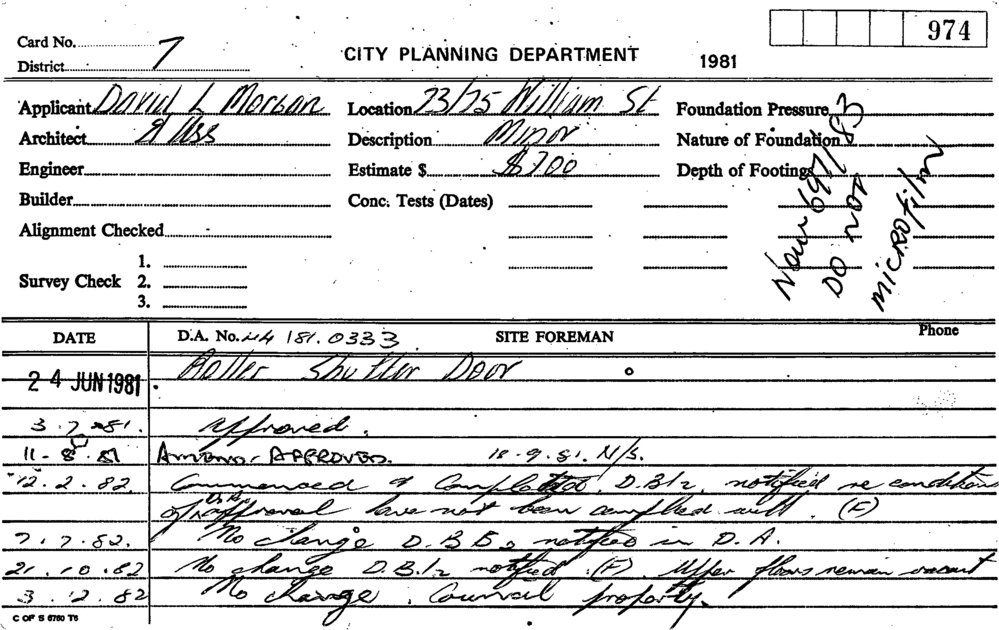 974
Card No.
District 7
CITY PLANNING DEPARTMENT 1981
Applicant David L Morgan Location 73/75 William St Foundation Pressure
Architect & Ass Description Minor Nature of Foundation
Engineer Estimate $ $700 Depth of Footings
Builder Conc. Tests (Dates)
Alignment Checked
Now 697/83
DO NOT
MICROFILM
1.
Survey Check 2.
3.
DATE D.A. No. 44 181.0333 SITE FOREMAN Phone
24 JUN 1981 Roller Shutter Door
3.7.81. Approved.
11-8-81 AMEND. APPROVED. 10.9.81. N/S.
12.2.82. Commenced & Completed. notified re conditions
of approval have not been complied with. (F)
7.7.82. No change notified in D.A.
21.10.82 No change notified. (F). Upper floors remain vacant
3.12.82 No change. Council property.
C OF S 6760 T6